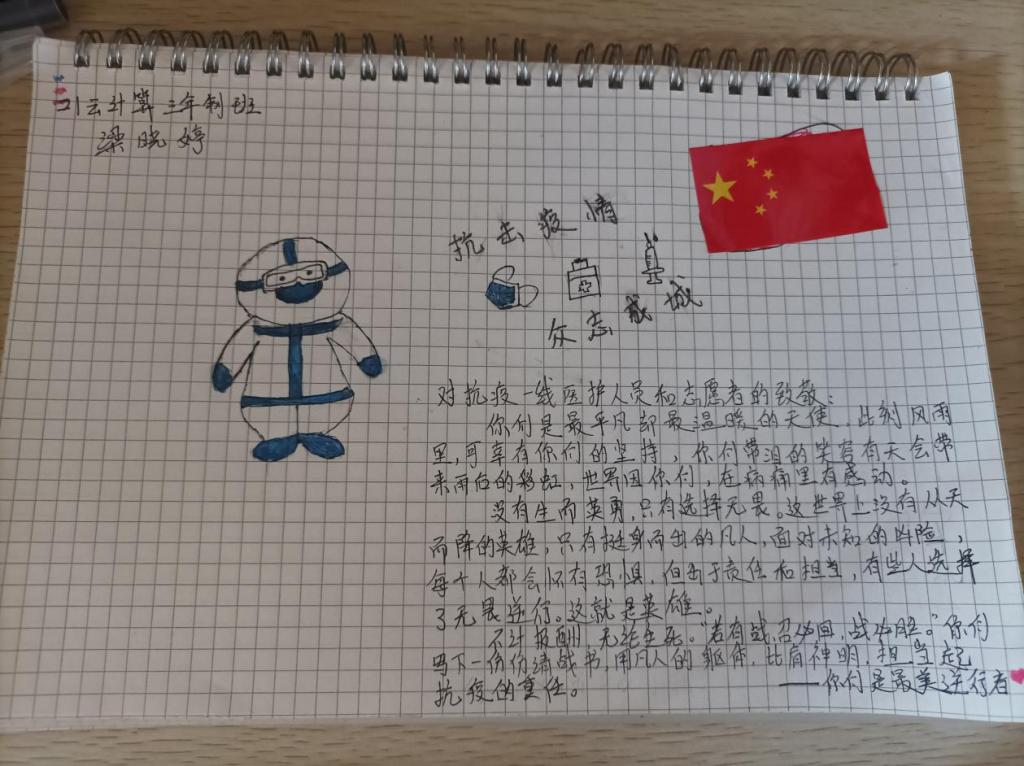 21云计算三年制班
梁晓婷
抗击疫情
众志成城
对抗疫一线医护人员和志愿者的致敬：
你们是最平凡却最温暖的天使，此刻风雨
里，可幸有你们的坚持，你们带泪的笑容有天会带
来雨后的彩虹，世界因你们，在病痛里有感动。
没有生而英勇，只有选择无畏。这世界上没有从天
而降的英雄，只有挺身而出的凡人，面对未知的阵险，
每个人都会怀有恐惧，但出于责任和担当，有些人选择
了无畏逆行。这就是英雄。
不计报酬，无论生死。“若有战，召必回，战必胜。”你们
写下一份份请战书，用凡人的躯体，比肩神明，担当起
抗疫的重任。
——你们是最美逆行者